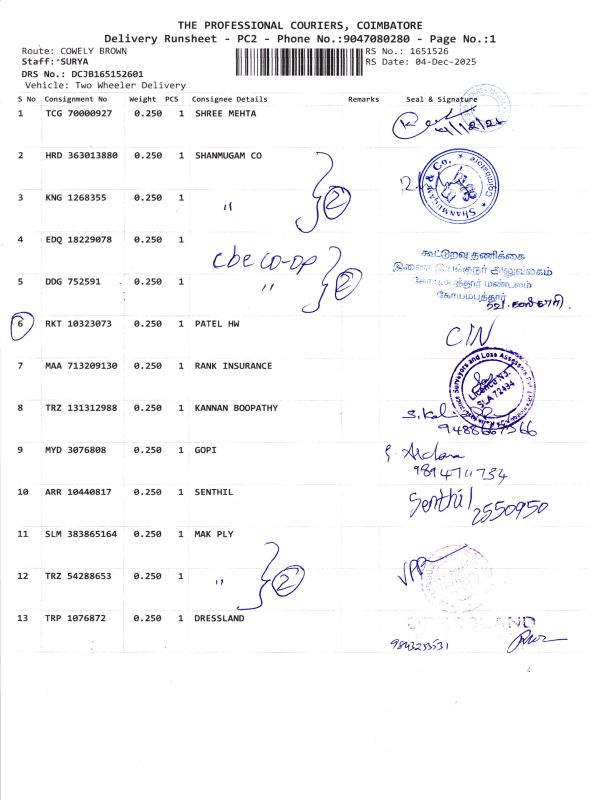 THE PROFESSIONAL COURIERS, COIMBATORE
Delivery Runsheet - PC2 - Phone No.:9047080280 - Page No.:1
Route: COWELY BROWN RS No.: 1651526
Staff: SURYA RS Date: 04-Dec-2025
DRS No.: DCJB165152601
Vehicle: Two Wheeler Delivery
S No Consignment No Weight PCS Consignee Details Remarks Seal & Signature
1 TCG 70000927 0.250 1 SHREE MEHTA
2 HRD 363013880 0.250 1 SHANMUGAM CO
SHANMUGAM & Co. Coimbatore
3 KNG 1268355 0.250 1 "
2
4 EDQ 18229078 0.250 1
cbe co-op
கூட்டுறவு தணிக்கை
இணை இயக்குநர் அலுவலகம்
கோயமுத்தூர் மண்டலம்
கோயமுத்தூர்
5 DDG 752591 0.250 1 "
2
6 RKT 10323073 0.250 1 PATEL HW
7 MAA 713209130 0.250 1 RANK INSURANCE
Surveyors and Loss Assessors
LICENCE No.
SLA 72494
8 TRZ 131312988 0.250 1 KANNAN BOOPATHY
9 MYD 3076808 0.250 1 GOPI
10 ARR 10440817 0.250 1 SENTHIL
Senthil
2550950
11 SLM 383865164 0.250 1 MAK PLY
12 TRZ 54288653 0.250 1 "
2
13 TRP 1076872 0.250 1 DRESSLAND